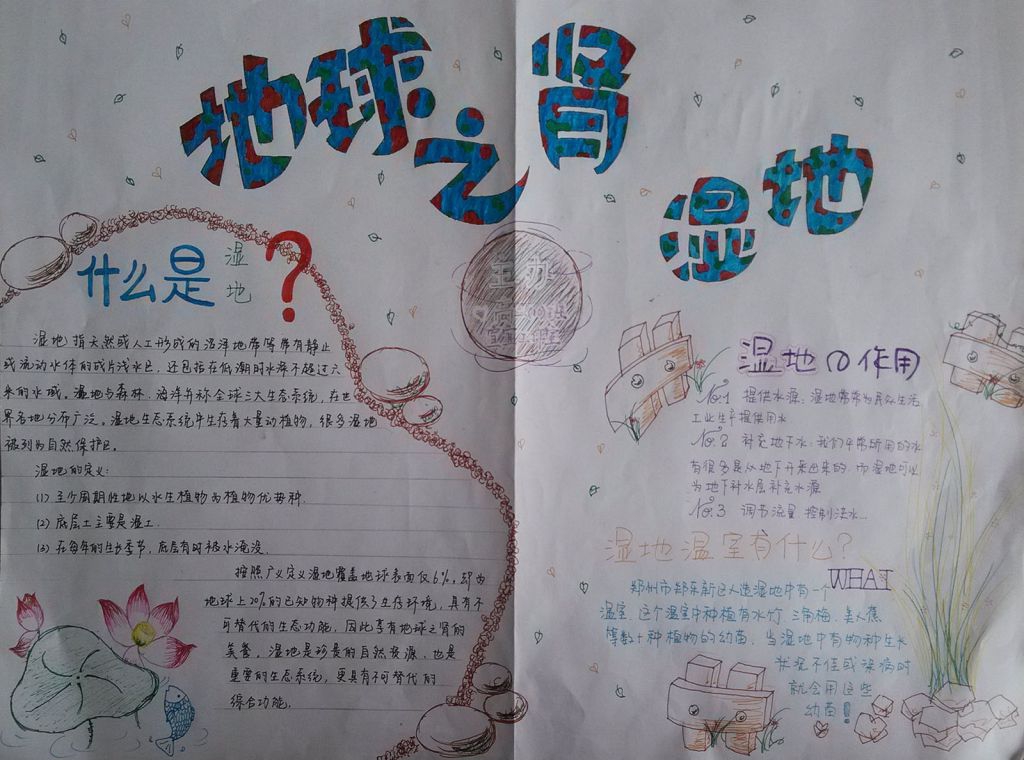 地球之肾
湿地
什么是湿地?
湿地指天然或人工形成的沼泽地带等带有静止
或流动水体的成片浅水区,还包括在低潮时水深不超过六
米的水域。湿地与森林、海洋并称全球三大生态系统,在世
界各地分布广泛。湿地生态系统中生存着大量动植物,很多湿地
被列为自然保护区。
湿地的定义:
(1) 至少周期性地以水生植物为植物优势种.
(2) 底层土主要是湿土.
(3) 在每年的生长季节,底层有时被水淹没.
按照广义定义湿地覆盖地球表面仅6%,却为
地球上20%的已知物种提供了生存环境,具有不
可替代的生态功能,因此享有地球之肾的
美誉。湿地是珍贵的自然资源,也是
重要的生态系统,更具有不可替代的
综合功能.
主办
湿地の作用
No.1 提供水源:湿地常常为居民生活
工业生产提供用水
No.2 补充地下水:我们平常所用的水
有很多是从地下开采出来的.而湿地可以
为地下补水层补充水源
No.3 调节流量 控制洪水...
湿地温室有什么?
WHAT
郑州市郑东新区人造湿地中有一个
温室,这个温室中种植有水竹、三角梅、美人蕉
等数十种植物的幼苗,当湿地中有物种生长
状况不佳或染病时
就会用这些
幼苗!